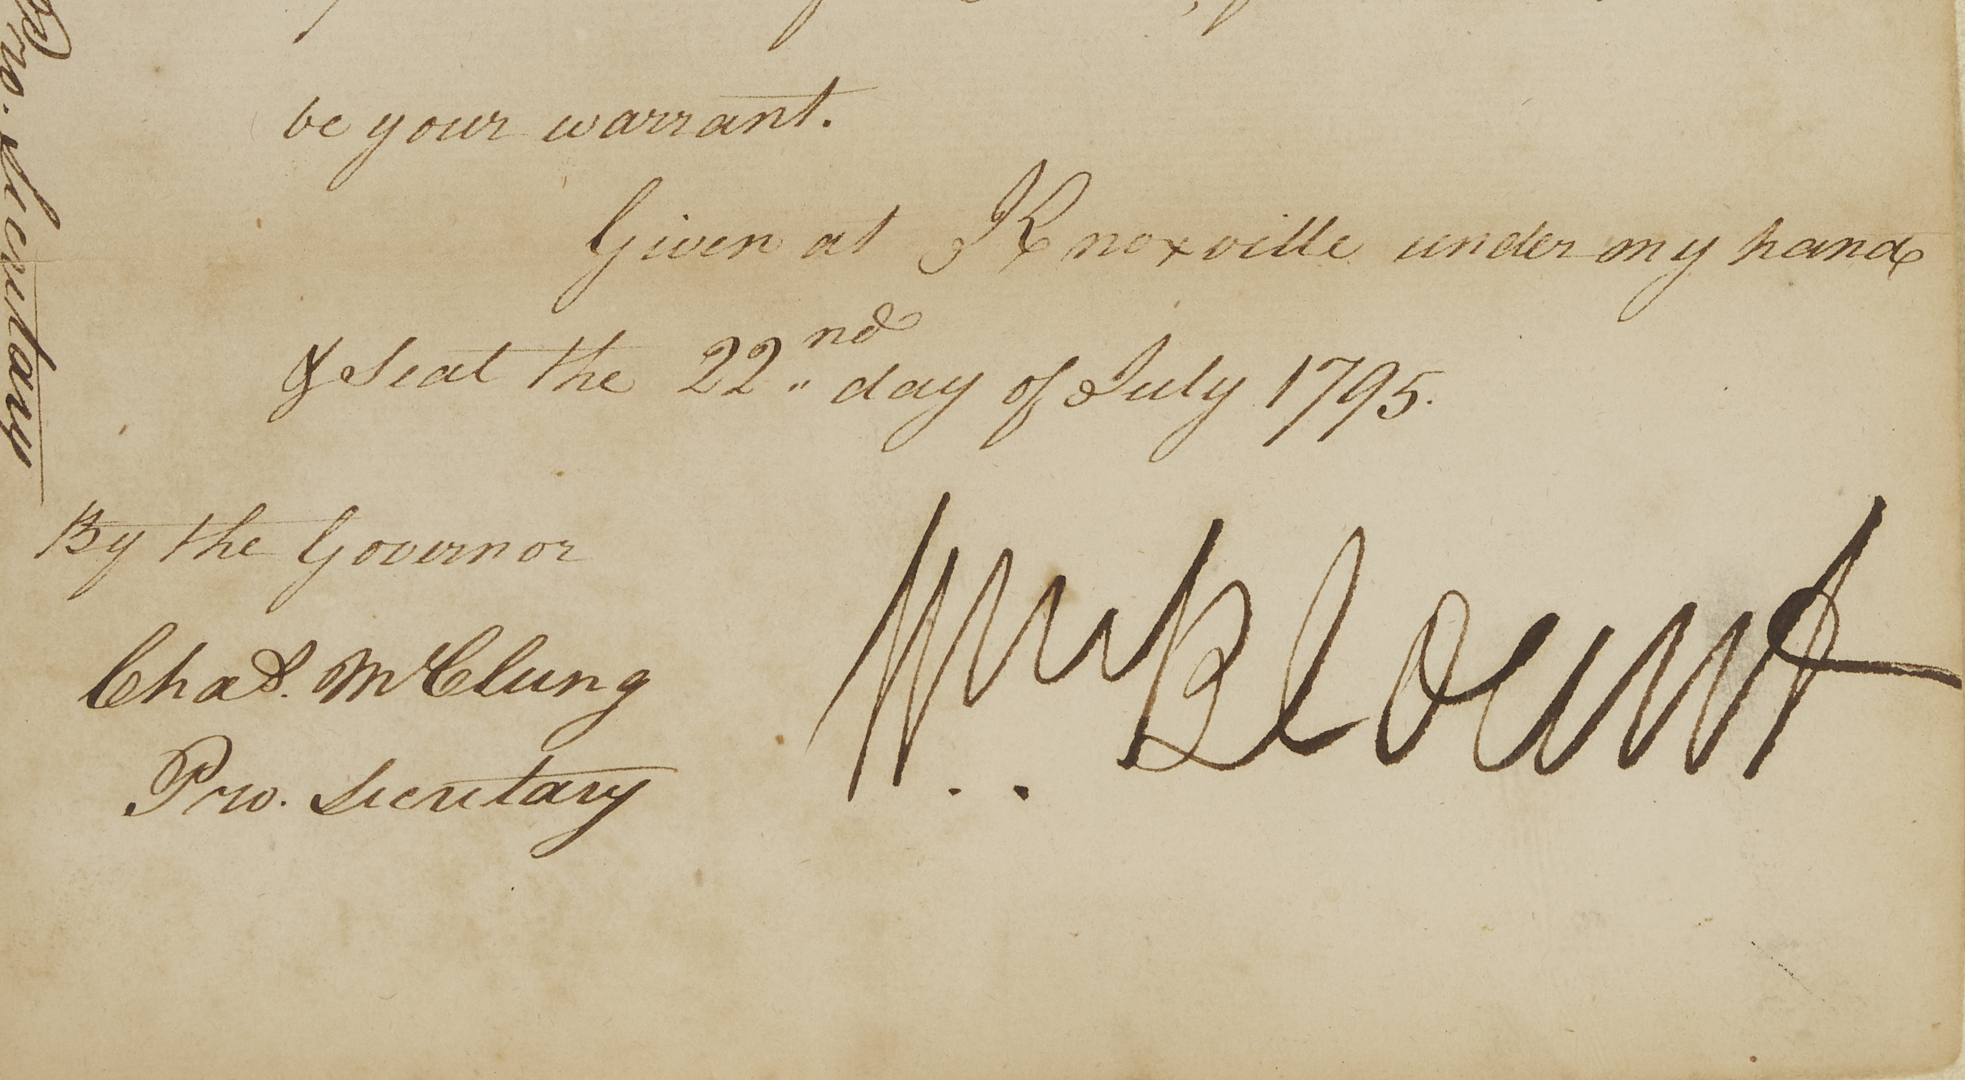 be your warrant.
Given at Knoxville under my hand
& Seal the 22nd day of July 1795.
By the Governor
Wm Blount
Chas. McClung
Pro. Secretary
Pro. Secretary